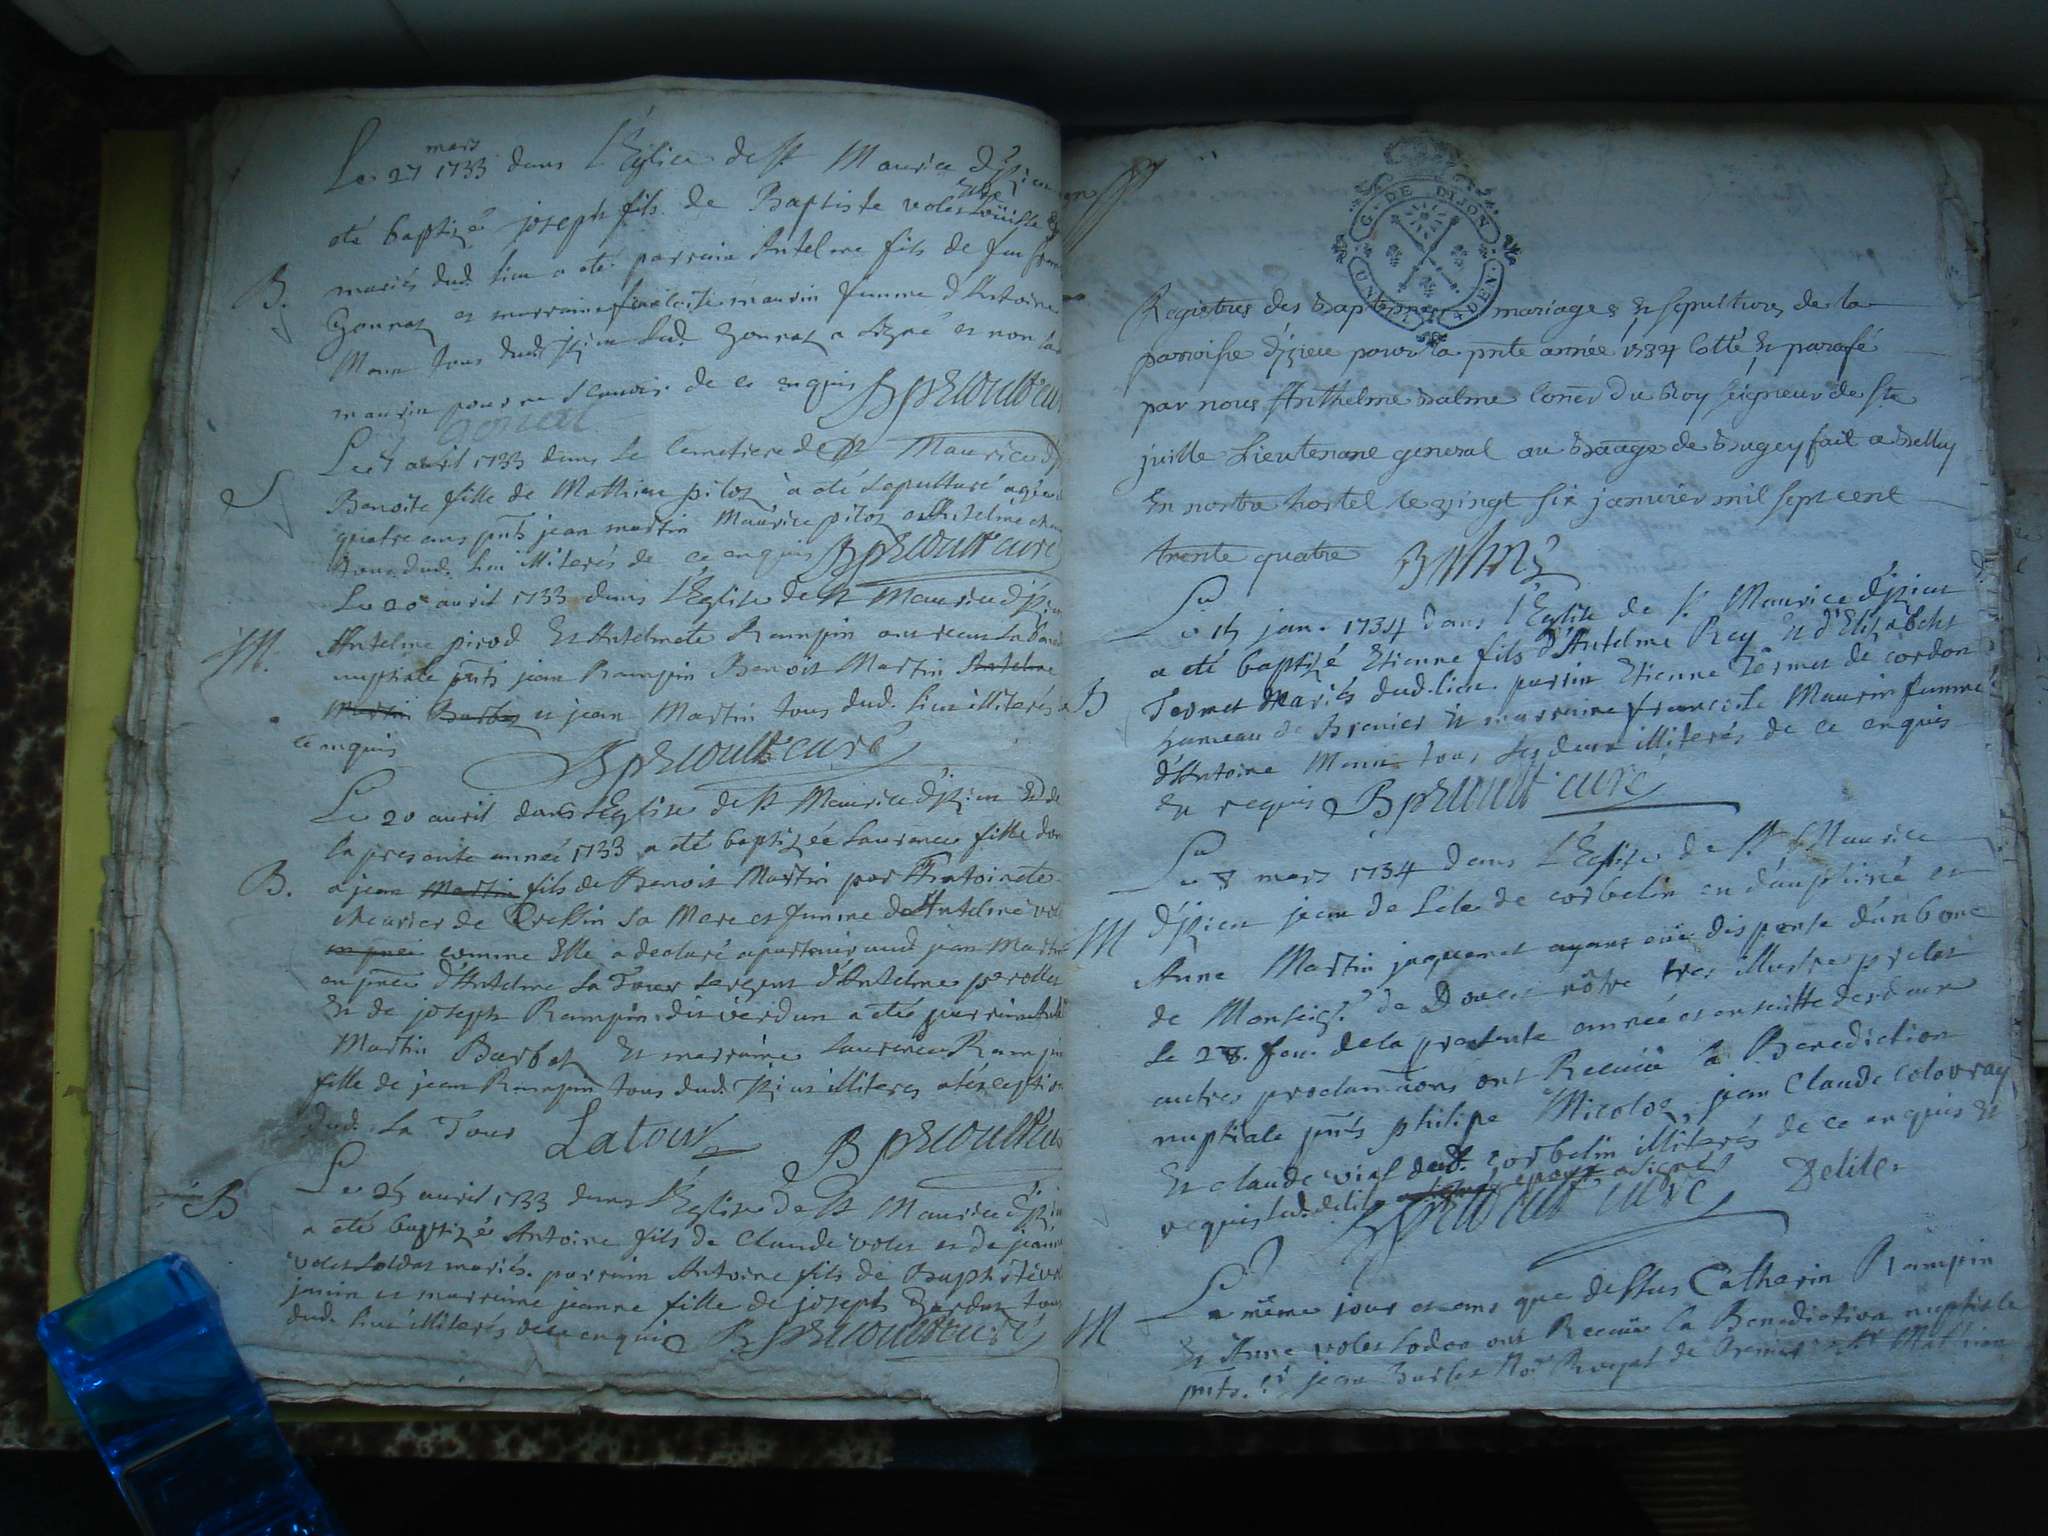 mars
Le 27 1733 dans l'Eglise de St Maurice d'Izieu
eté baptizé joseph fils de Baptiste volet
B. mariés dud. lieu a eté parrain Antelme fils de feu
Gonnet et marraine francoise maurin femme d'Antoine
Monin tous dud Izieu led. Gonnet a signé et non lad
maurin pour ne scavoir de ce enquis B preoult curé
Gonnet
Le 7 avril 1733 dans le Cemetiere de St Maurice
S Benoite fille de Mathieu piloz a eté sepulturé agée de
quatre ans pnts jean martin Maurice piloz Antelme
tous dud. lieu illiterés de ce enquis B preoult curé
Le 20e avril 1733 dans l'Eglise de St Maurice d'Izieu
M. Antelme pirod Et Antelmete Rampin ont receu la
nuptiale pnts jean Rampin Benoit Martin Antelme
Martin Barbaz et jean Martin tous dud. lieu illiterés
ce enquis
B preoult curé
Le 20 avril dans l'Eglise de St Maurice d'Izieu Et de
la presente année 1733 a eté baptizée Laurence fille
B. a jean Martin fils de Benoit Martin par Antoinete
de Cressin sa Mere et femme de Antelme
comme Elle a declaré apartenir aud jean Martin
en pnce d'Antelme La Tour sergent d'Antelme perollet
Et de joseph Rampin dit verdun a eté parrain
Martin Barbaz Et marraine Laurence Rampin
fille de jean Rampin tous dud. Izieu illiteres a l'exception
dud. La Tour Latour B preoult curé
B Le 25 avril 1733 dans l'Eglise de St Maurice d'Izieu
a eté baptizé Antoine fils de Claude volet et de jeanne
volet soldat mariés. parrain Antoine fils de Baptiste
janin et marraine jeanne fille de joseph tous
dud. lieu illiterés de ce enquis B preoult curé
G. DE DIJON
Registres des Baptemes mariages Et sepultures de la
parroisse d'izieu pour la pnte année 1734 Cotté Et parafé
par nous Anthelme Balme Coner Du Roy seigneur de Ste
juille Lieutenant general au Baage de Bugey fait a Belley
En nostre hostel le vingt six janvier mil sept cent
trente quatre Balme
Le 15 jan. 1734 dans l'Eglise de St Maurice d'Izieu
a eté baptizé Etienne fils d'Antelme Rey Et d'Elizabeht
B Termet Mariés dud. lieu. parrin Etienne Termet de cordon
hameau de Brenier Et marraine francoise Maurin femme
d'Antoine Monin tous les deux illiterés de ce enquis
Et requis B preoult curé
Le 8 mars 1734 dans l'Eglise de St Maurice
M d'Izieu jean de Lile de corbelin en dauphiné et
Anne Martin jaquenet ayans eüe dispense d'un banc
de Monseigr de Doucin nôtre tres illustre prelat
le 28. fev. de la presente année et ensuitte des deux
autres proclamãons ont Receüe la Benediction
nuptiale pnts philipe Micoloz, jean Claude colovray
Et claude vial dud. corbelin illiterés de ce enquis Et
requis led. delile a signé
B preoult curé Delile
M Le même jour et ans que dessus Catharin Rampin
Et Anne volet ont Receüe la Benediction nuptiale
pnts. sr jean Not Royal de Brenier sr Mathieu